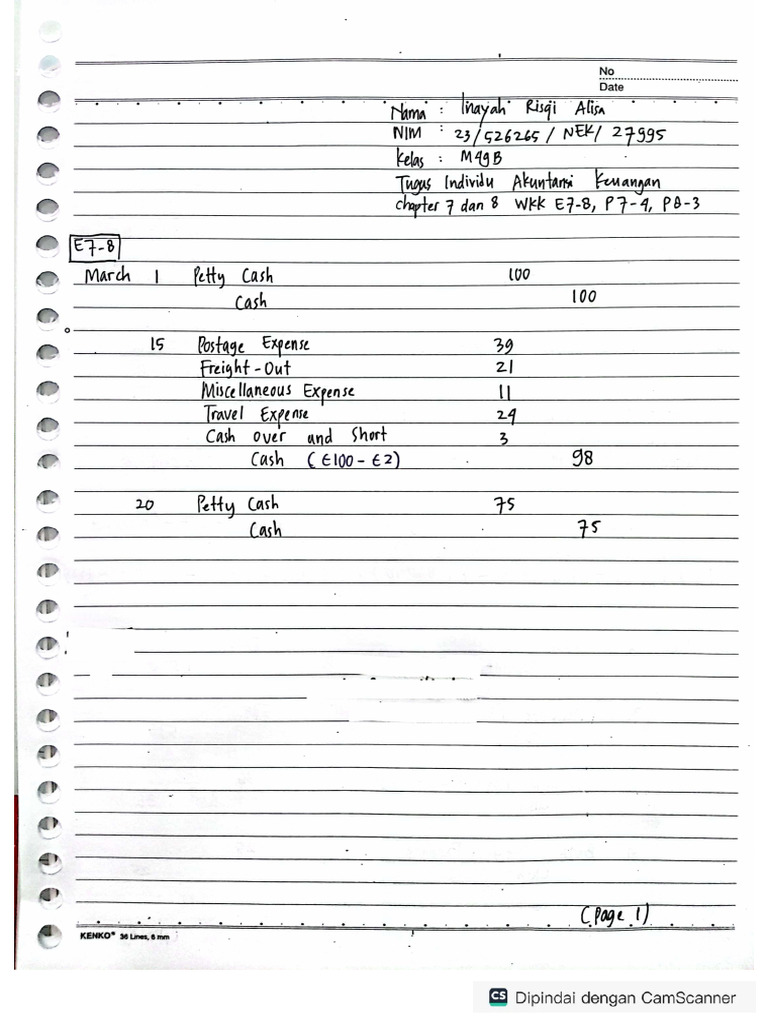 No
Date
Nama : Inayah Risqi Alisa
NIM : 23/526265/NEK/27995
Kelas : M49B
Tugas Individu Akuntansi Keuangan
chapter 7 dan 8 WKK E7-8, P7-4, P8-3
E7-8
March 1 Petty Cash 100
Cash 100
15 Postage Expense 39
Freight-Out 21
Miscellaneous Expense 11
Travel Expense 24
Cash over and Short 3
Cash (€100 - €2) 98
20 Petty Cash 75
Cash 75
(page 1)
KENKO® 36 Lines, 6 mm
CS Dipindai dengan CamScanner